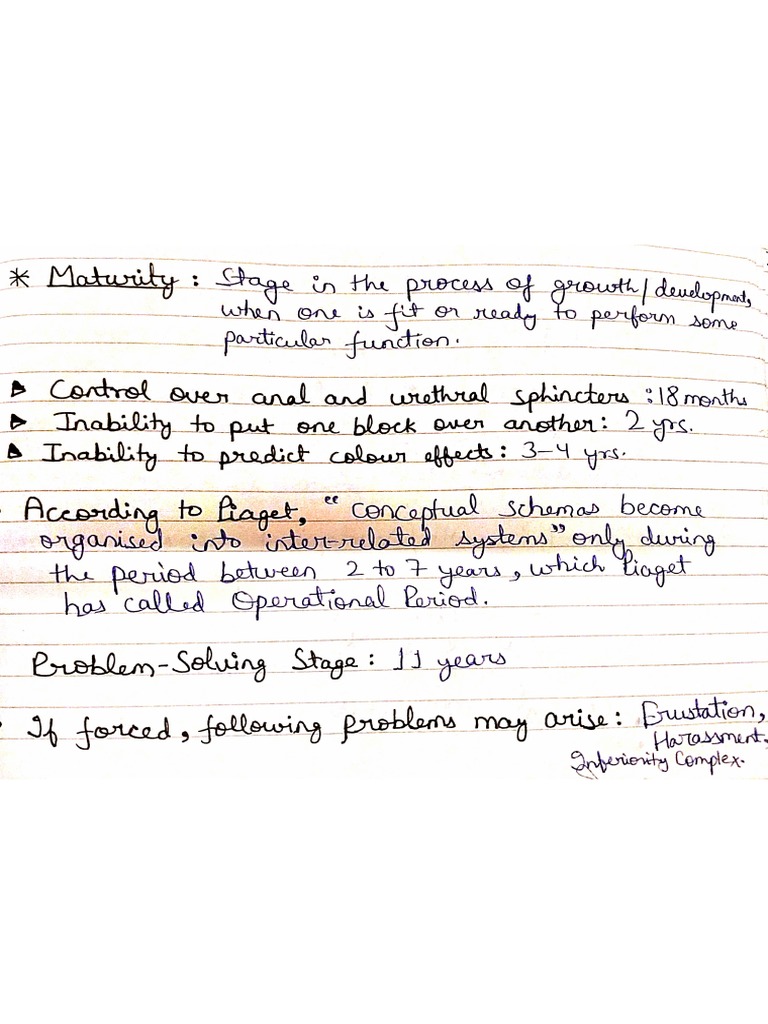 * Maturity : Stage in the process of growth/development,
when one is fit or ready to perform some
particular function.
▶ Control over anal and urethral sphincters : 18 months
▶ Inability to put one block over another : 2 yrs.
▶ Inability to predict colour effects : 3-4 yrs.
According to Piaget, "conceptual schemas become
organised into inter-related systems" only during
the period between 2 to 7 years, which Piaget
has called Operational Period.
Problem-Solving Stage : 11 years
If forced, following problems may arise : Frustation,
Harassment,
Inferiority Complex.